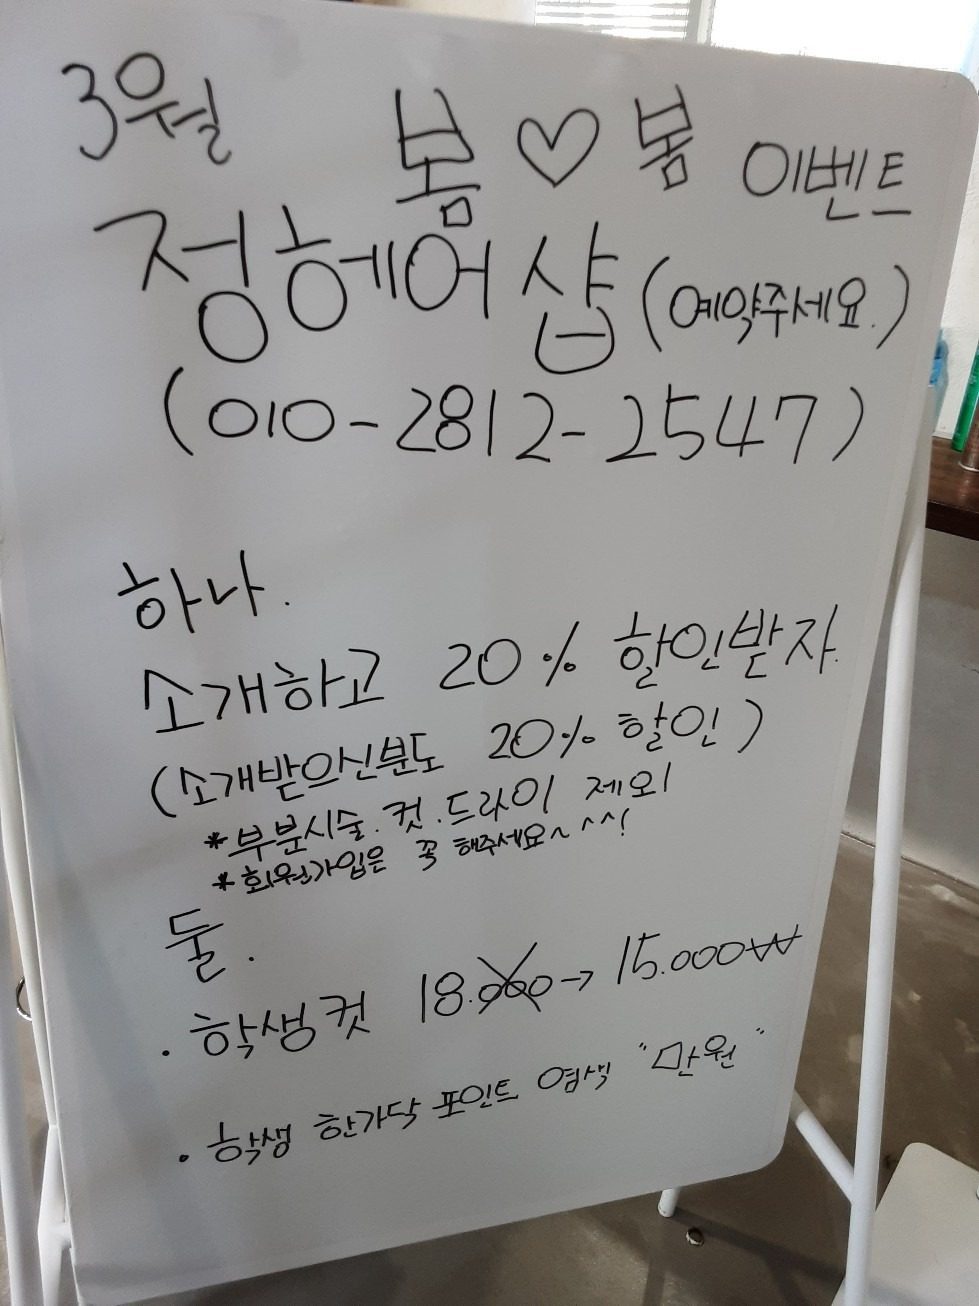 3월 봄♡봄 이벤트
정헤어샵 (예약주세요.)
(010-2812-2547)
하나.
소개하고 20% 할인받자.
(소개받으신분도 20% 할인)
*부분시술.컷.드라이 제외
*회원가입은 꼭 해주세요~^^!
둘.
· 학생컷 18.000→15.000₩
· 학생 한가닥 포인트 염색 "만원"